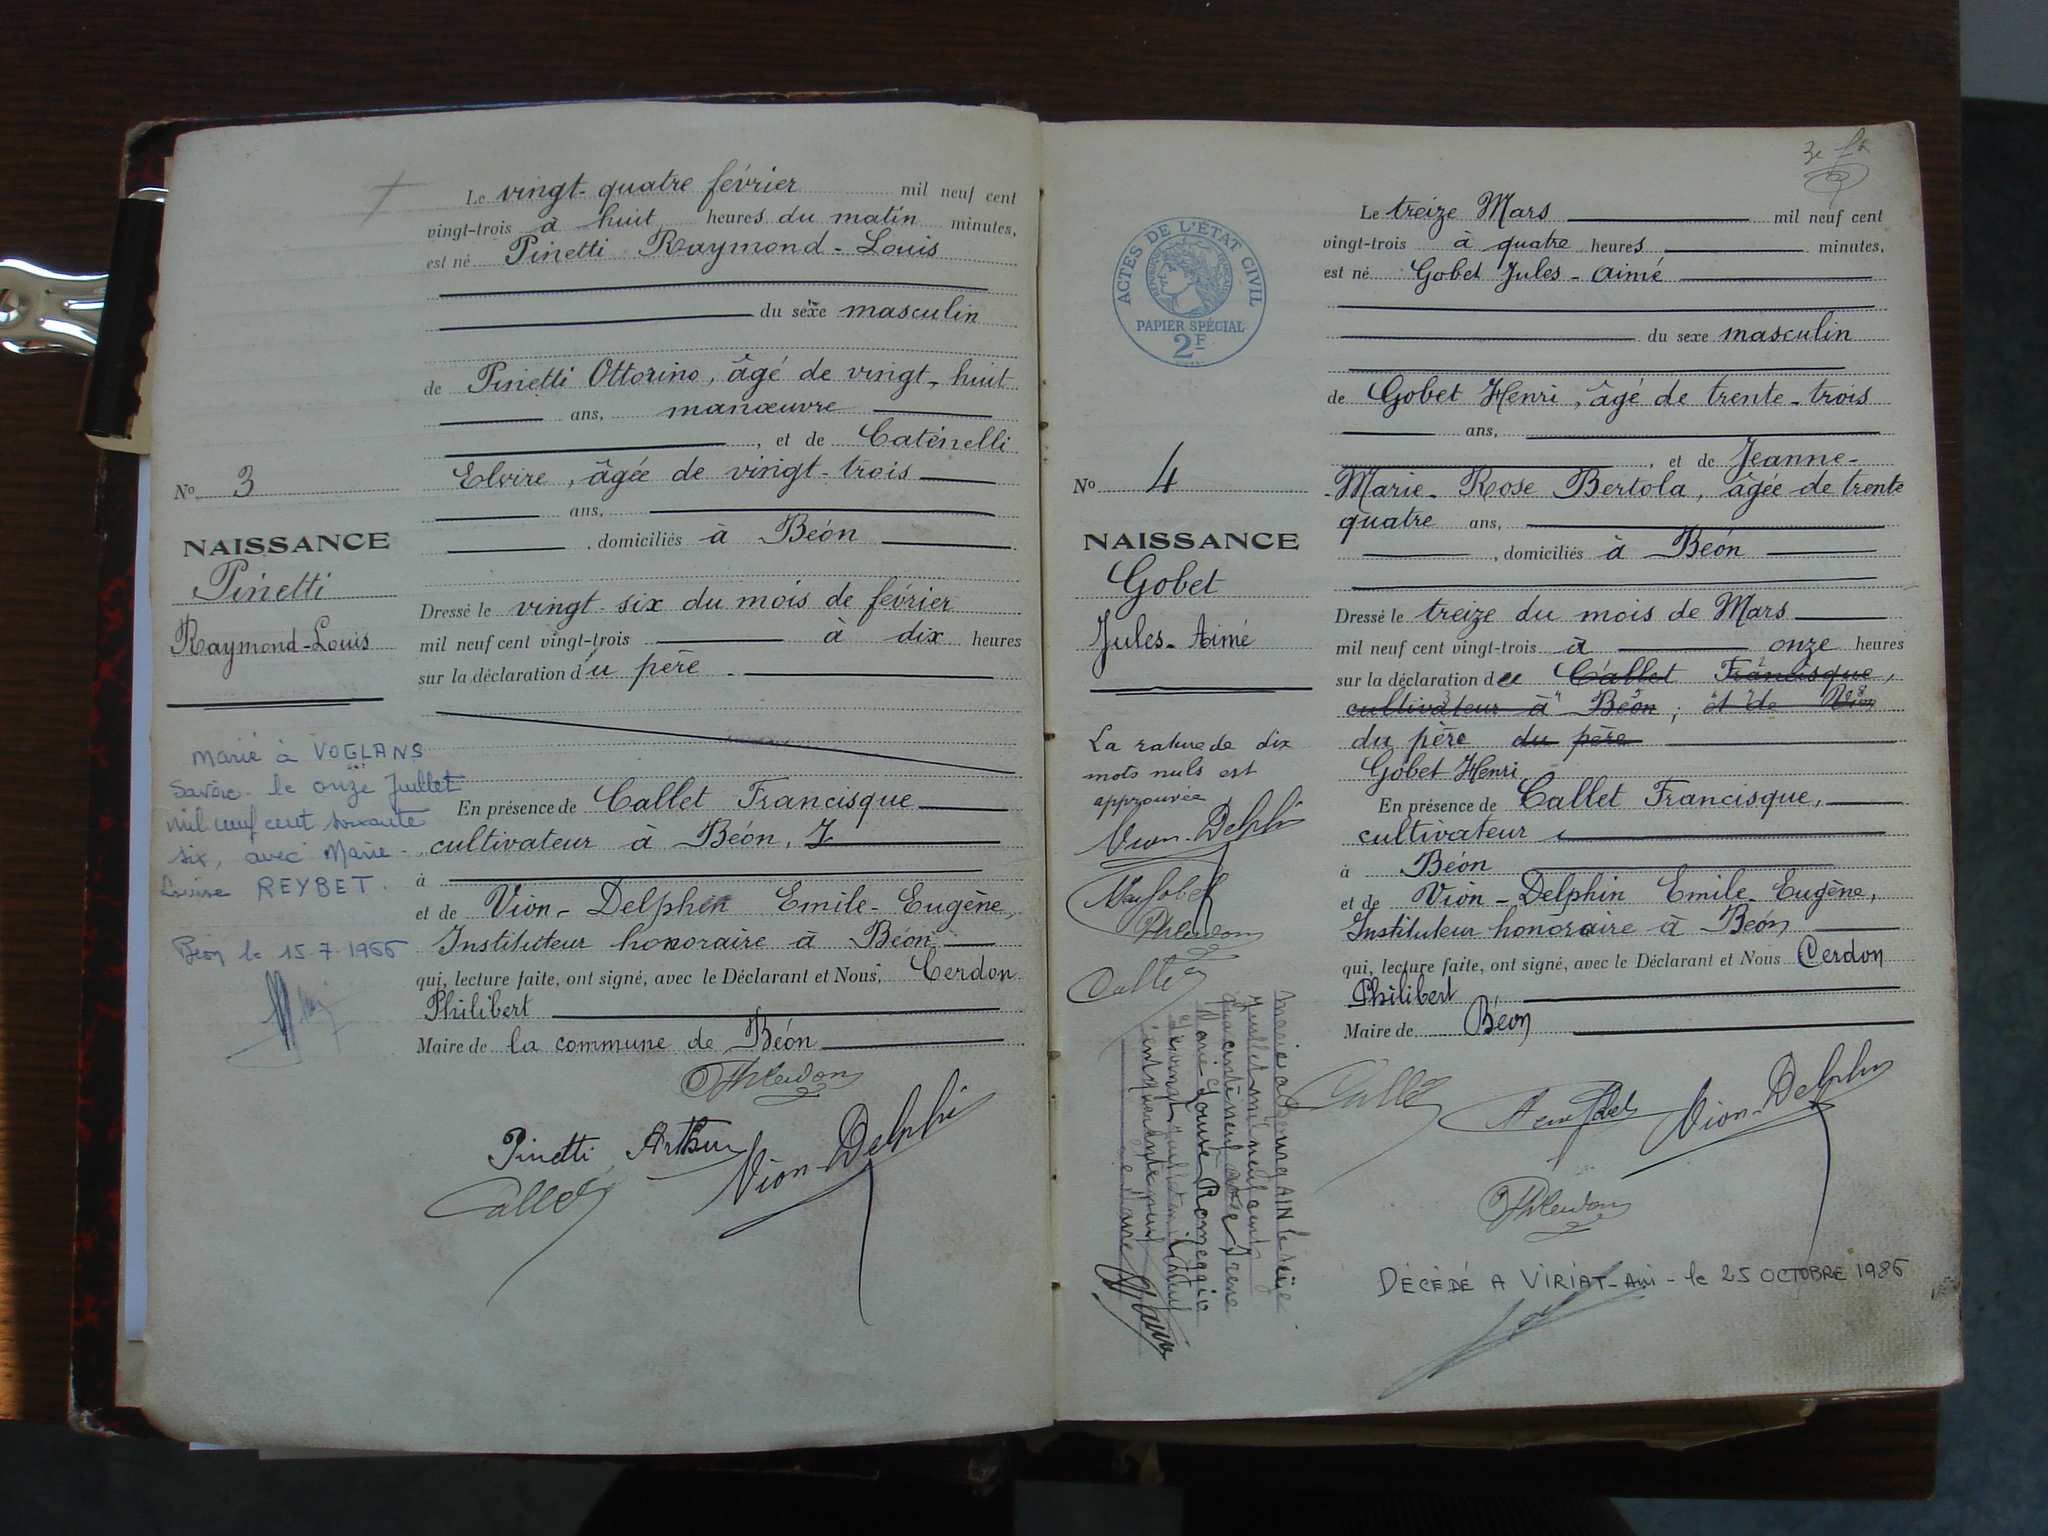 Le vingt-quatre février mil neuf cent
vingt-trois à huit heures du matin minutes,
est né Pinetti Raymond-Louis
du sexe masculin
de Pinetti Ottorino, âgé de vingt-huit
ans, manœuvre
, et de Catinelli
Elvire, âgée de vingt-trois
ans,
, domiciliés à Béon
Dressé le vingt-six du mois de février
mil neuf cent vingt-trois à dix heures
sur la déclaration du père
En présence de Callet Francisque
cultivateur à Béon,
à
et de Vion-Delphin Emile-Eugène,
Instituteur honoraire à Béon,
qui, lecture faite, ont signé, avec le Déclarant et Nous, Cerdon
Philibert
Maire de la commune de Béon
PhCerdon
Pinetti Arthur
Vion-Delphin
Callet
No 3
NAISSANCE
Pinetti
Raymond-Louis
Marié à VOGLANS
Savoie - le onze Juillet
mil neuf cent soixante
six, avec Marie-
Louise REYBET.
Béon le 15-7-1966
Le treize Mars mil neuf cent
vingt-trois à quatre heures minutes,
est né Gobet Jules-Aimé
du sexe masculin
de Gobet Henri, âgé de trente-trois
ans,
, et de Jeanne-
-Marie-Rose Bertola, âgée de trente
quatre ans,
, domiciliés à Béon
Dressé le treize du mois de Mars
mil neuf cent vingt-trois à onze heures
sur la déclaration de Callet Francisque,
cultivateur à Béon, et de Vion
du père du père
Gobet Henri
En présence de Callet Francisque,
cultivateur,
à Béon
et de Vion-Delphin Emile-Eugène,
Instituteur honoraire à Béon
qui, lecture faite, ont signé, avec le Déclarant et Nous Cerdon
Philibert
Maire de Béon
Callet
Vion-Delphin
PhCerdon
DÉCÉDÉ A VIRIAT-Ain - le 25 OCTOBRE 1986
ACTES DE L'ÉTAT CIVIL
PAPIER SPÉCIAL
2F
No 4
NAISSANCE
Gobet
Jules-Aimé
La rature de dix
mots nuls est
approuvée
Vion-Delphin
PhCerdon
Callet
Juillet mil neuf cent
Marie Louise Romeggio
le Maire